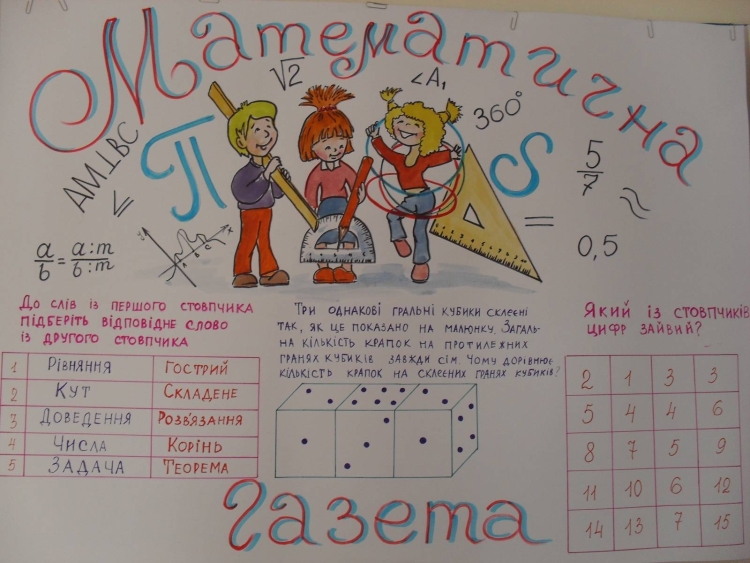 Математична
√2
∠A₁
360°
AM⊥BC
П
S
5/7
≈
≤
=
0,5
a/b = a:m/b:m
y
x
До слів із першого стовпчика
підберіть відповідне слово
із другого стовпчика
1 Рівняння Гострий
2 Кут Складене
3 Доведення Розв'язання
4 Числа Корінь
5 Задача Теорема
Три однакові гральні кубики склеєні
так, як це показано на малюнку. Загаль-
на кількість крапок на протилежних
гранях кубиків завжди сім. Чому дорівнює
кількість крапок на склеєних гранях кубиків?
Який із стовпчиків
цифр зайвий?
2 1 3 3
5 4 4 6
8 7 5 9
11 10 6 12
14 13 7 15
газета